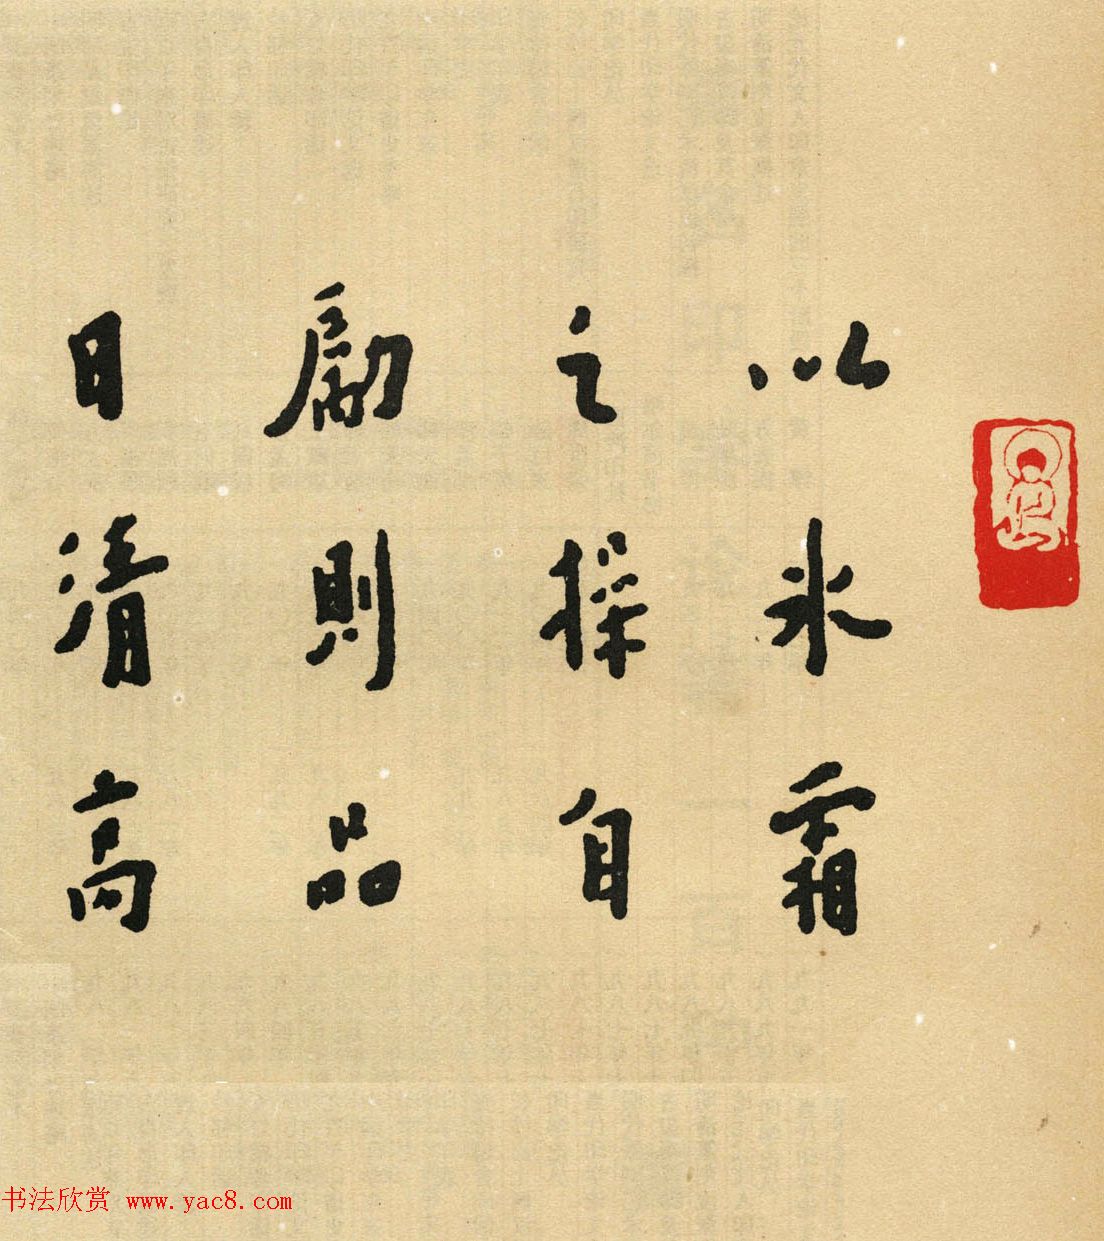 以冰霜
之操自
励則品
日清高
书法欣赏 www.yac8.com